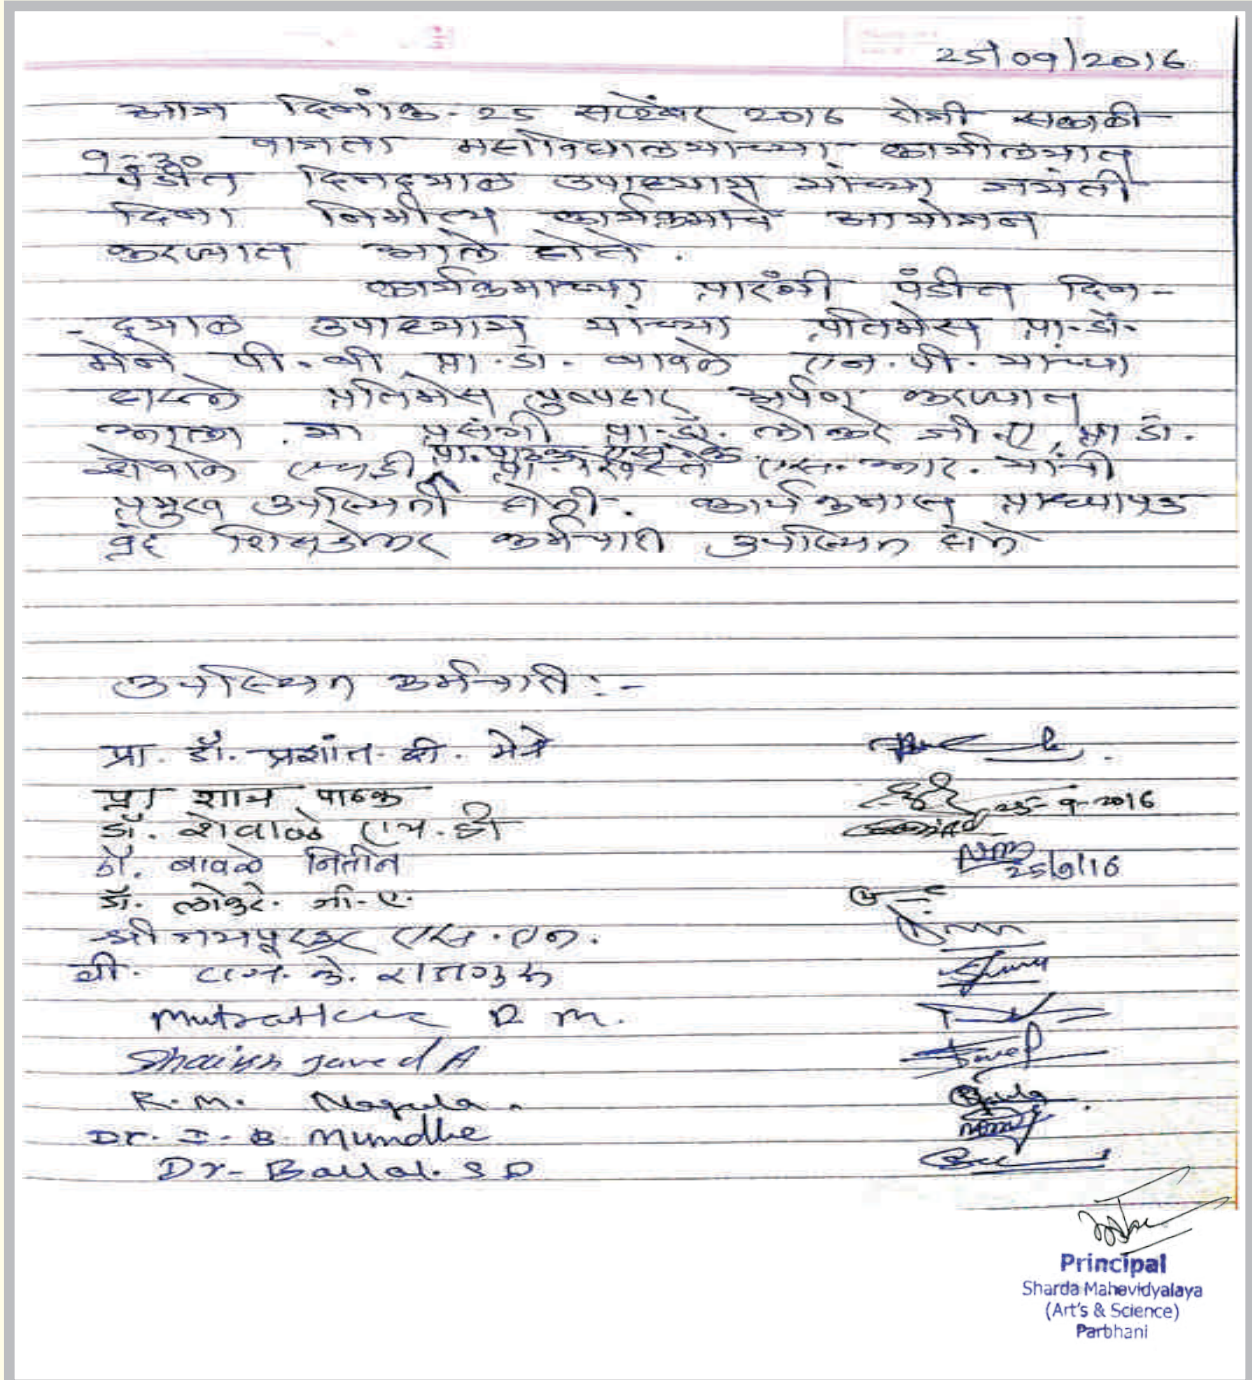 25/09/2016
आज दिनांक - 25 सप्टेंबर 2016 रोजी सकाळी
9:30 वाजता महाविद्यालयाच्या कार्यालयात
पंडीत दिनदयाळ उपाध्याय यांच्या जयंती
दिना निमीत्य कार्यक्रमाचे आयोजन
करण्यात आले होते.
कार्यक्रमाच्या प्रारंभी पंडीत दिन-
- दयाळ उपाध्याय यांच्या प्रतिमेस प्रा.डॉ.
मेने पी.बी प्रा.डॉ. बावळे एन.पी. यांच्या
हास्ते प्रतिमेस पुष्पहार अर्पण करण्यात
आला. या प्रसंगी प्रा.डॉ. लोकरे जी.ए, प्रा डॉ.
शेवाळे एमडी, प्रा. एस.आर. यांची
प्रमुख उपस्थिती होती. कार्यक्रमास प्राध्यापक
वृंद शिक्षकेतर कर्मचारी उपस्थित होते
उपस्थित कर्मचारी :-
प्रा. डॉ. प्रशांत. बी. मेने
प्रा पाठक
25-9-2016
डॉ. शेवाळे एम.डी
डॉ. बावळे नितीन
25/9/16
डॉ. लोकरे. जी.ए.
श्री एस.एन.
श्री. एम. के. राजगुरू
R. M.
Shaikh Javed A
R.M. Nagula.
Dr. I. B. Mundhe
Dr- Ballal. S D
Principal
Sharda Mahavidyalaya
(Art's & Science)
Parbhani